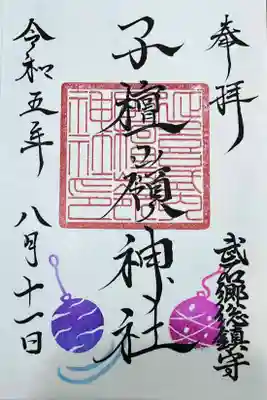 奉拝
武石郷総鎮守
子檀嶺神社
令和五年 八月十一日